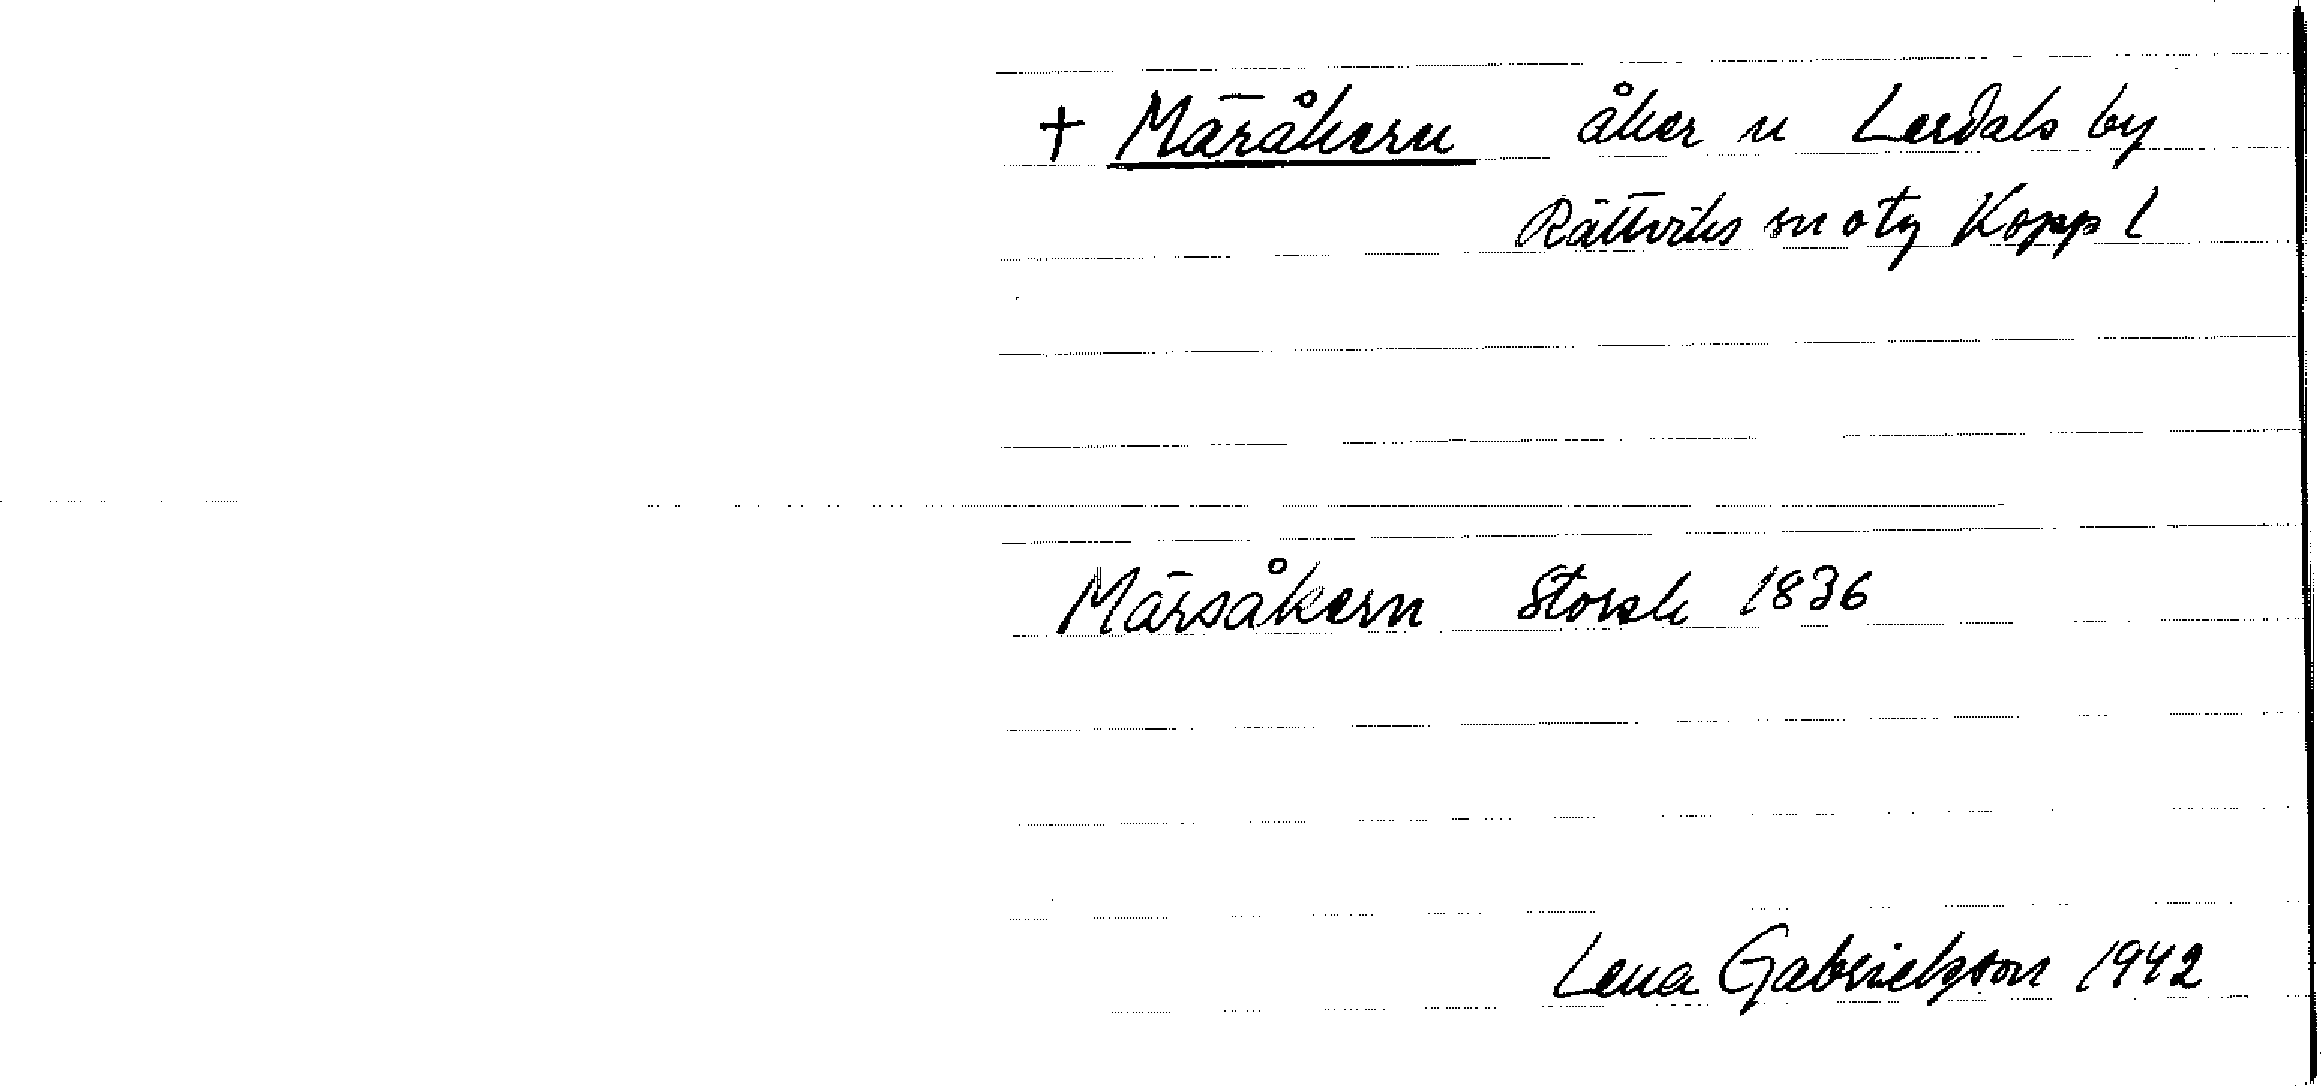 + Märåkern åker n Lerdals by
Rättviks sn o tg Kopp l
Märsåkern Storsk 1836
Lena Gabrielsson 1942